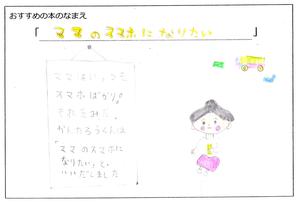 おすすめの本のなまえ
「ママのスマホになりたい」
ママはいつも
スマホばかり。
それをみた
かんたろうくんは
「ママのスマホに
なりたい」と、
いいだしました